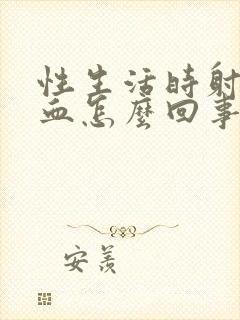 性生活時射
血怎麼回事
安羨